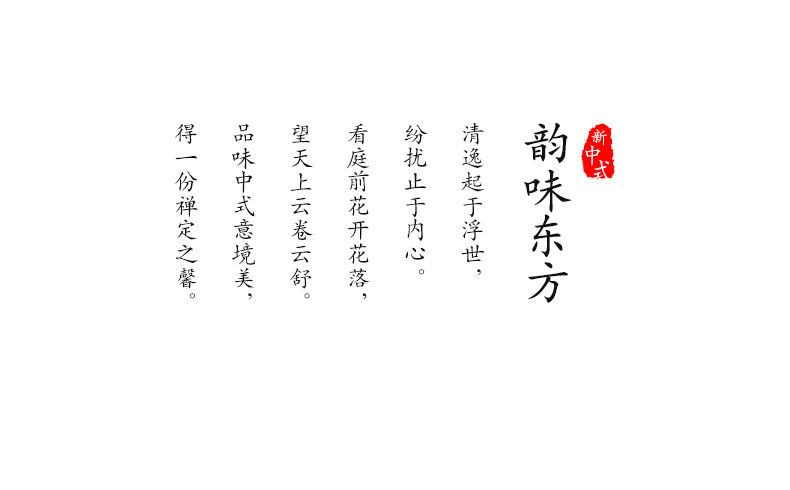 新中式
韵味东方
清逸起于浮世，
纷扰止于内心。
看庭前花开花落，
望天上云卷云舒。
品味中式意境美，
得一份禅定之馨。